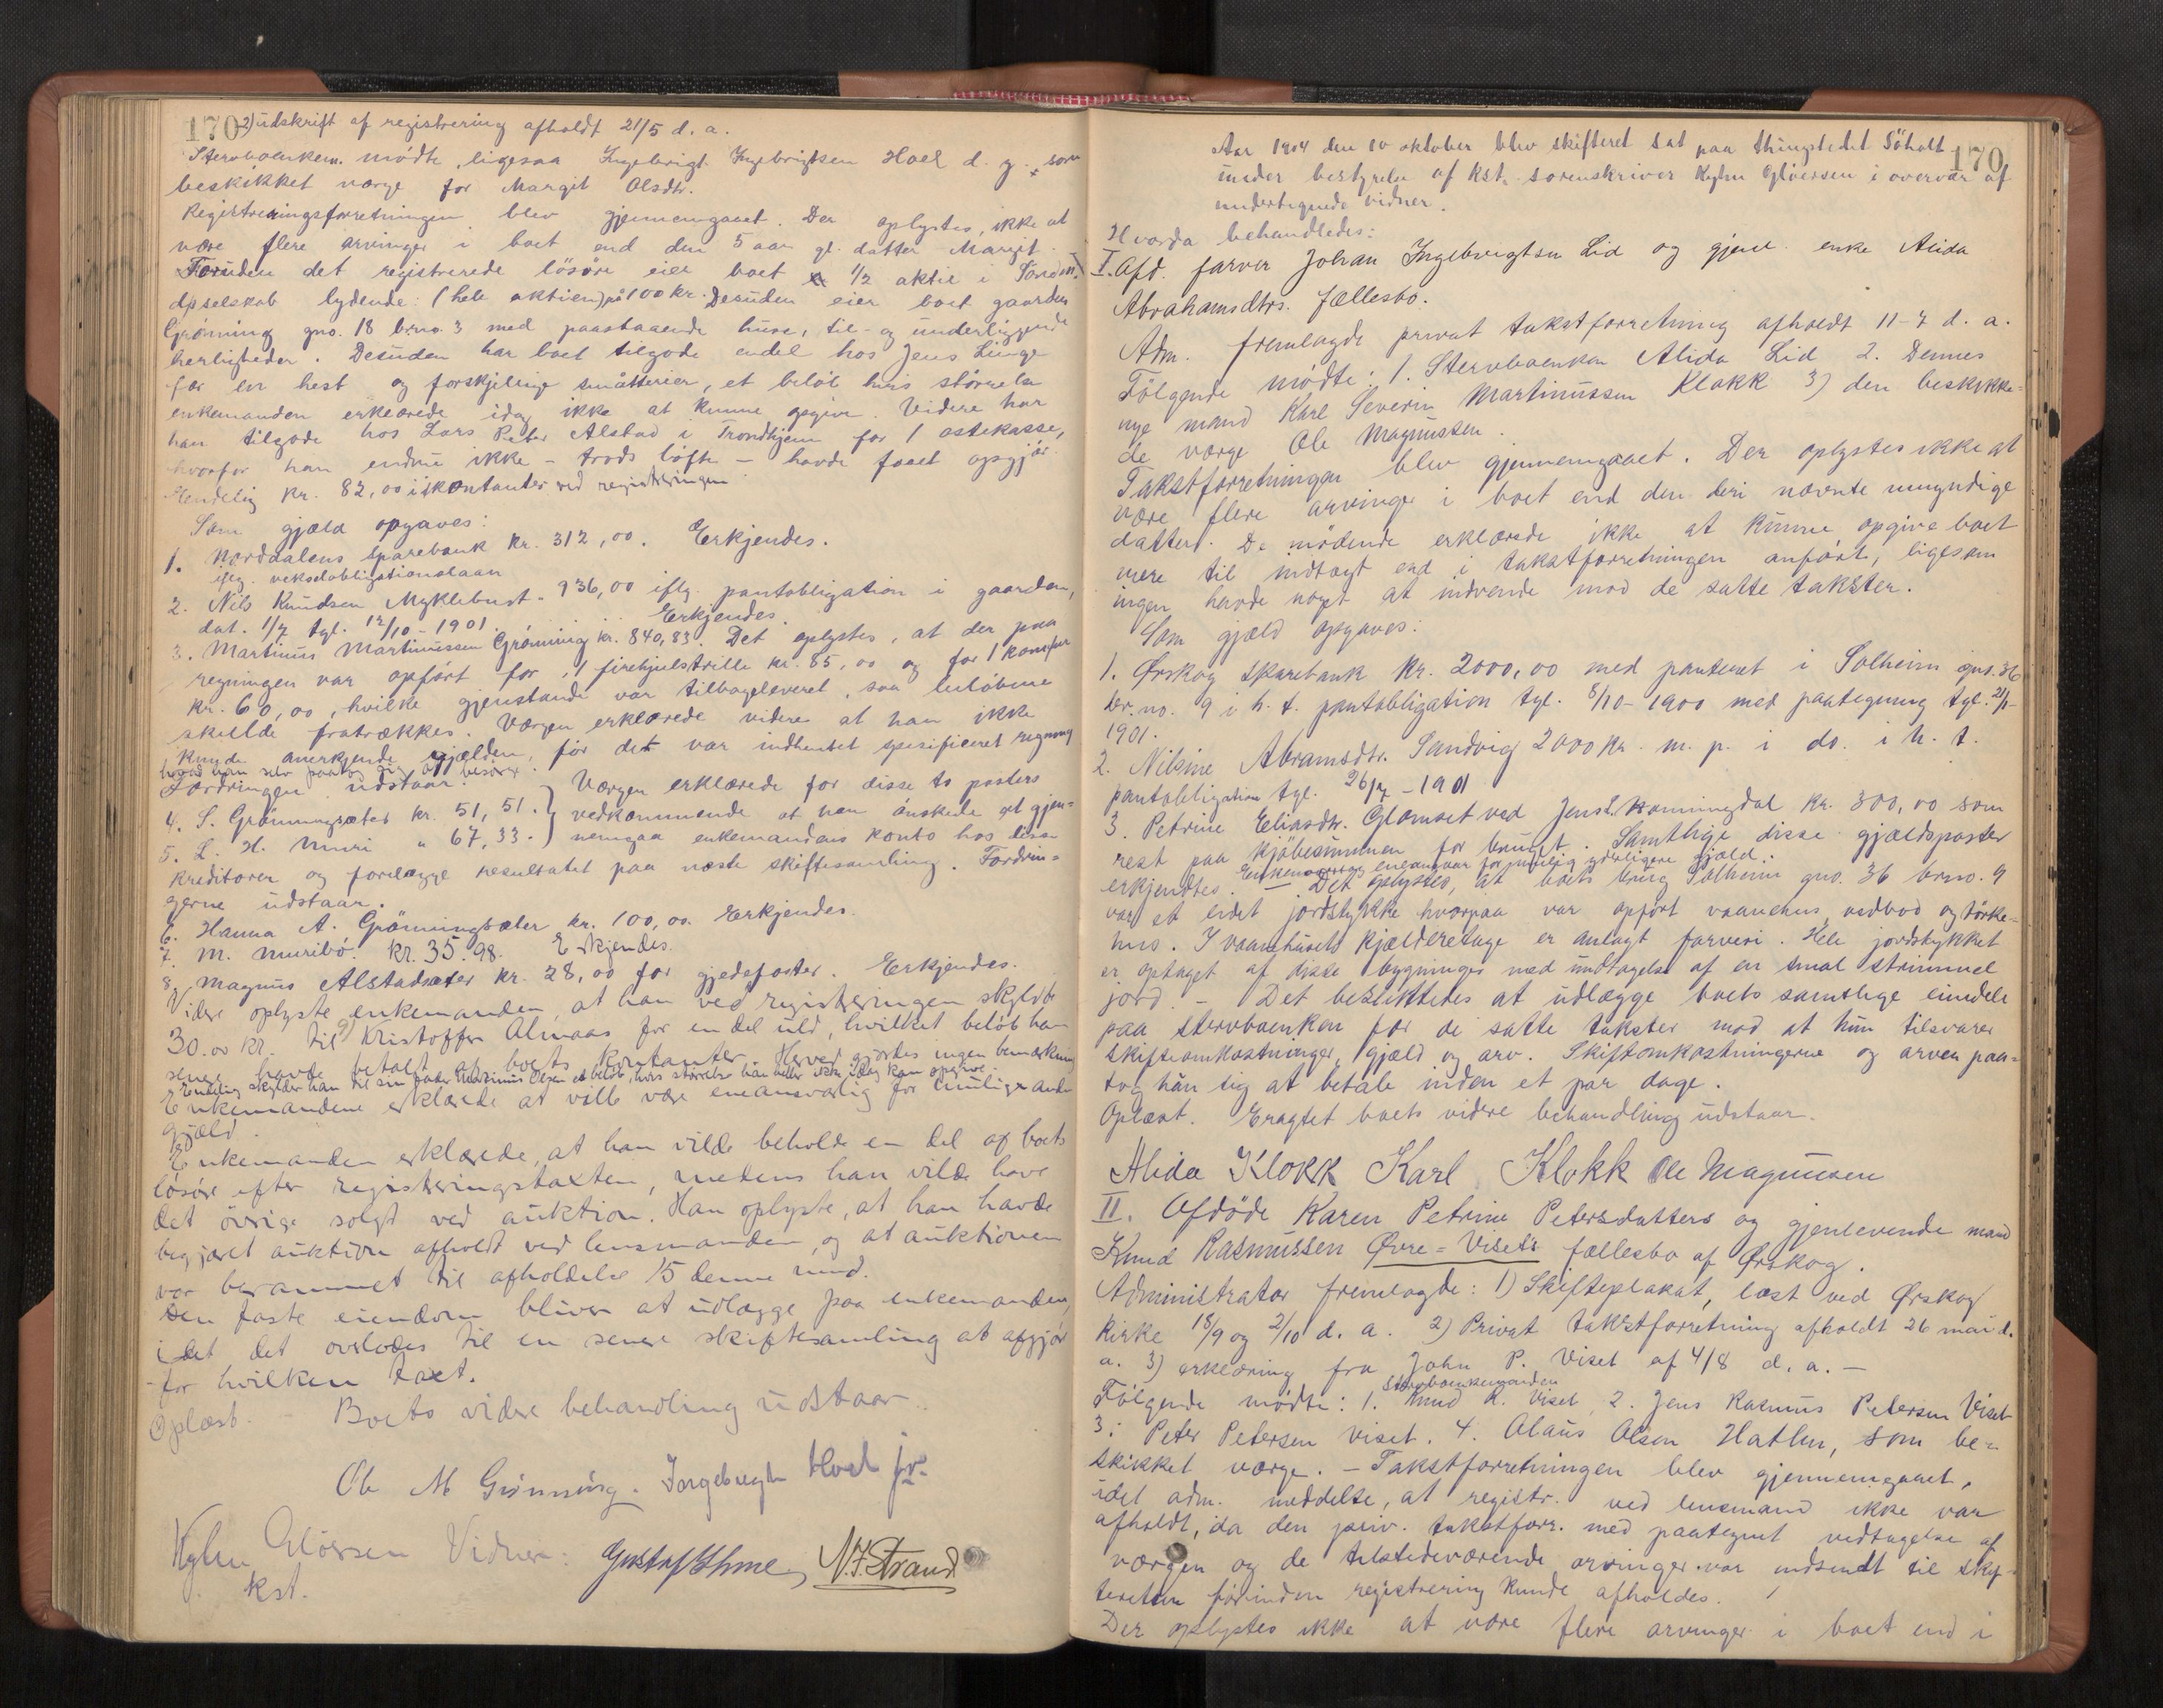 170 2) udskrift af registrering afholdt 21/5 d. a.
Stervboenkem. mødte, ligesaa Ingebrigt Ingebrigtsen Hoel d. y., som
beskikket værge for Margit Olsdtr.
Registreringsforretningen blev gjennemgaaet. Der oplystes, ikke at
være flere arvinger i boet end den 5 aar gl. datter Margit.
Foruden det registrerede lösöre eier boet 1/2 aktie i Söndm.
dpselskab lydende: (hele aktien) på 100 kr. Desuden eier boet gaarden
Grønning gno. 18 brno. 3 med paastaaende huse, til- og underliggende
herligheder. Desuden har boet tilgode endel hos Jens Linge
for en hest og forskjelige småtterier, et beløb hvis størrelse
enkemanden erklærede idag ikke at kunne opgive. Videre har
han tilgode hos Lars Peter Alstad i Trondhjem for 1 ostekasse,
hvorfor han endnu ikke - trods löfte - havde faaet opgjør.
Hendelig kr. 82,00 i kontanter ved registreringen.
Som gjæld opgaves:
1. Norddalens Sparebank kr. 312,00. Erkjendes.
iflg. vekselobligationslaan
2. Nils Knudsen Myklebust - 936,00 iflg. pantobligation i gaarden,
dat. 1/7 tgl. 12/10 - 1901. Erkjendes.
3. Martinus Martinussen Grønning kr. 840,83. Det oplystes, at der paa
regningen var opført for 1 firehjulstrille kr. 85,00 og for 1 komfur
kr. 60,00, hvilke gjenstande var tilbageleveret, saa beløbene
skulde fratrækkes. Værgen erklærede videre at han ikke
kunde anerkjende gjælden, før det var indhentet spesificeret regning
hvad han selv paatog sig at besørge.
Fordringen udstaar.
4. S. Grønningsæter kr. 51,51. } Værgen erklærede for disse to posters
5. L. H. Muri " 67,33. } vedkommende at han ønskede at gjen-
nemgaa enkemandens konto hos disse
kreditorer og forelægge resultatet paa næste skiftesamling. Fordrin-
gerne udstaar.
6. Hanna A. Grønningsæter kr. 100,00. Erkjendes.
7. M. Muribö. kr. 35.98. Erkjendes.
8. Magnus Alstadsæter kr. 28,00 for gjedefoster. Erkjendes.
Videre oplyste enkemanden, at han ved registreringen skyldte
30.00 kr. til 9) Kristoffer Almaas for en del uld, hvilket beløb han
senere havde betalt af boets kontanter. Herved gjordes ingen bemærkning
Endelig skylder han til sin fader Martinus Olsen et beløb, hvis størrelse han heller ikke idag kan opgive.
Enkemandene erklærede at ville være eneansvarlig for mulige anden
gjæld.
Enkemanden erklærede, at han vilde beholde en del af boets
løsöre efter registreringstaxten, medens han vilde have
det øvrige solgt ved auktion. Han oplyste, at han havde
begjæret auktion afholdt ved lensmanden, og at auktionen
var berammet til afholdelse 15 denne mnd.
Den faste eiendom bliver at udlægge paa enkemanden,
idet det overlodes til en senere skiftesamling at afgjøre
for hvilken taxt.
Oplæst. Boets videre behandling udstaar.
Ole M Grønning. Ingebrigt Hoel jr.
Hylen Glöersen Vidner: Gustaf Ohme, N. F. Strand
kst.
170
Aar 1904 den 10 oktober blev skifteret sat paa thingstedet Söholt
under bestyrelse af kst. sorenskriver Hylen Glöersen i overvær af
undertegnede vidner.
Hvorda behandledes:
I. Afd. farver Johan Ingebrigtsen Lid og gjenl. enke Alida
Abrahamsdtrs. fællesbo.
Adm. fremlagde privat takstforretning afholdt 11-7 d. a.
Følgende mødte: 1. Stervboenken Alida Lid 2. Dennes
nye mand Karl Severin Martinussen Klokk 3) den beskikke-
de værge Ole Magnussen.
Takstforretningen blev gjennemgaaet. Der oplystes ikke at
være flere arvinger i boet end den deri nævnte umyndige
datter. De mødende erklærede ikke at kunne opgive boet
mere til indtægt end i takstforretningen anført, ligesom
ingen havde noget at indvende mod de satte takster.
Som gjæld opgaves:
1. Ørskog Sparebank kr. 2000,00 med panteret i Solheim gno. 36
br.no. 9 i h. t. pantobligation tgl. 8/10 - 1900 med paategning tgl. 2/1-
1901.
2. Nilsine Abramsdtr. Sandvig 2000 kr. m. p. i do. i h. t.
pantobligation tgl. 26/7 - 1901
3. Petrine Eliasdtr. Glomset ved Jens Ramningdal kr. 300,00 som
rest paa kjøbesummen for bruget. Samtlige disse gjældsposter
Enken eneansvar for mulig yderligere gjæld.
erkjendtes. - Det oplystes, at boets brug Solheim gno. 36 brno. 9
var et lidet jordstykke hvorpaa var opført vaanehus, vedbod og tørke-
hus. I vaanehusets kjælderetage er anlagt farveri. Hele jordstykket
er optaget af disse bygninger med undtagelse af en smal strimmel
jord. - Det besluttedes at udlægge boets samtlige eiendele
paa stervboenken for de satte takster mod at hun tilsvarer
skifteomkostninger, gjæld og arv. Skifteomkostningerne og arven paa-
tog hun sig at betale inden et par dage.
Oplæst. Eragtet boets videre behandling udstaar.
Alida Klokk Karl Klokk Ole Magnusen
II. Afdöde Karen Petrine Petersdatters og gjenlevende mand
Knud Rasmussen Øvre-Viset's fællesbo af Ørskog.
Administrator fremlagde: 1) Skifteplakat, læst ved Ørskog
kirke 18/9 og 2/10 d. a. 2) Privat takstforretning afholdt 26 mai d.
a. 3) erklæring fra John P. Viset af 4/8 d. a. -
stervboenkemanden
Følgende mødte: 1. Knud R. Viset 2. Jens Rasmus Petersen Viset
3. Peter Petersen Viset. 4. Olaus Olsen Hatlen, som be-
skikket værge. - Takstforretningen blev gjennemgaaet,
idet adm. meddelte, at registr. ved lensmand ikke var
afholdt, da den priv. takstforr. med paategnet vedtagelse af
værgen og de tilstedeværende arvinger var indsendt til skif-
teretten förinden registrering kunde afholdes.
Der oplystes ikke at være flere arvinger i boet end i